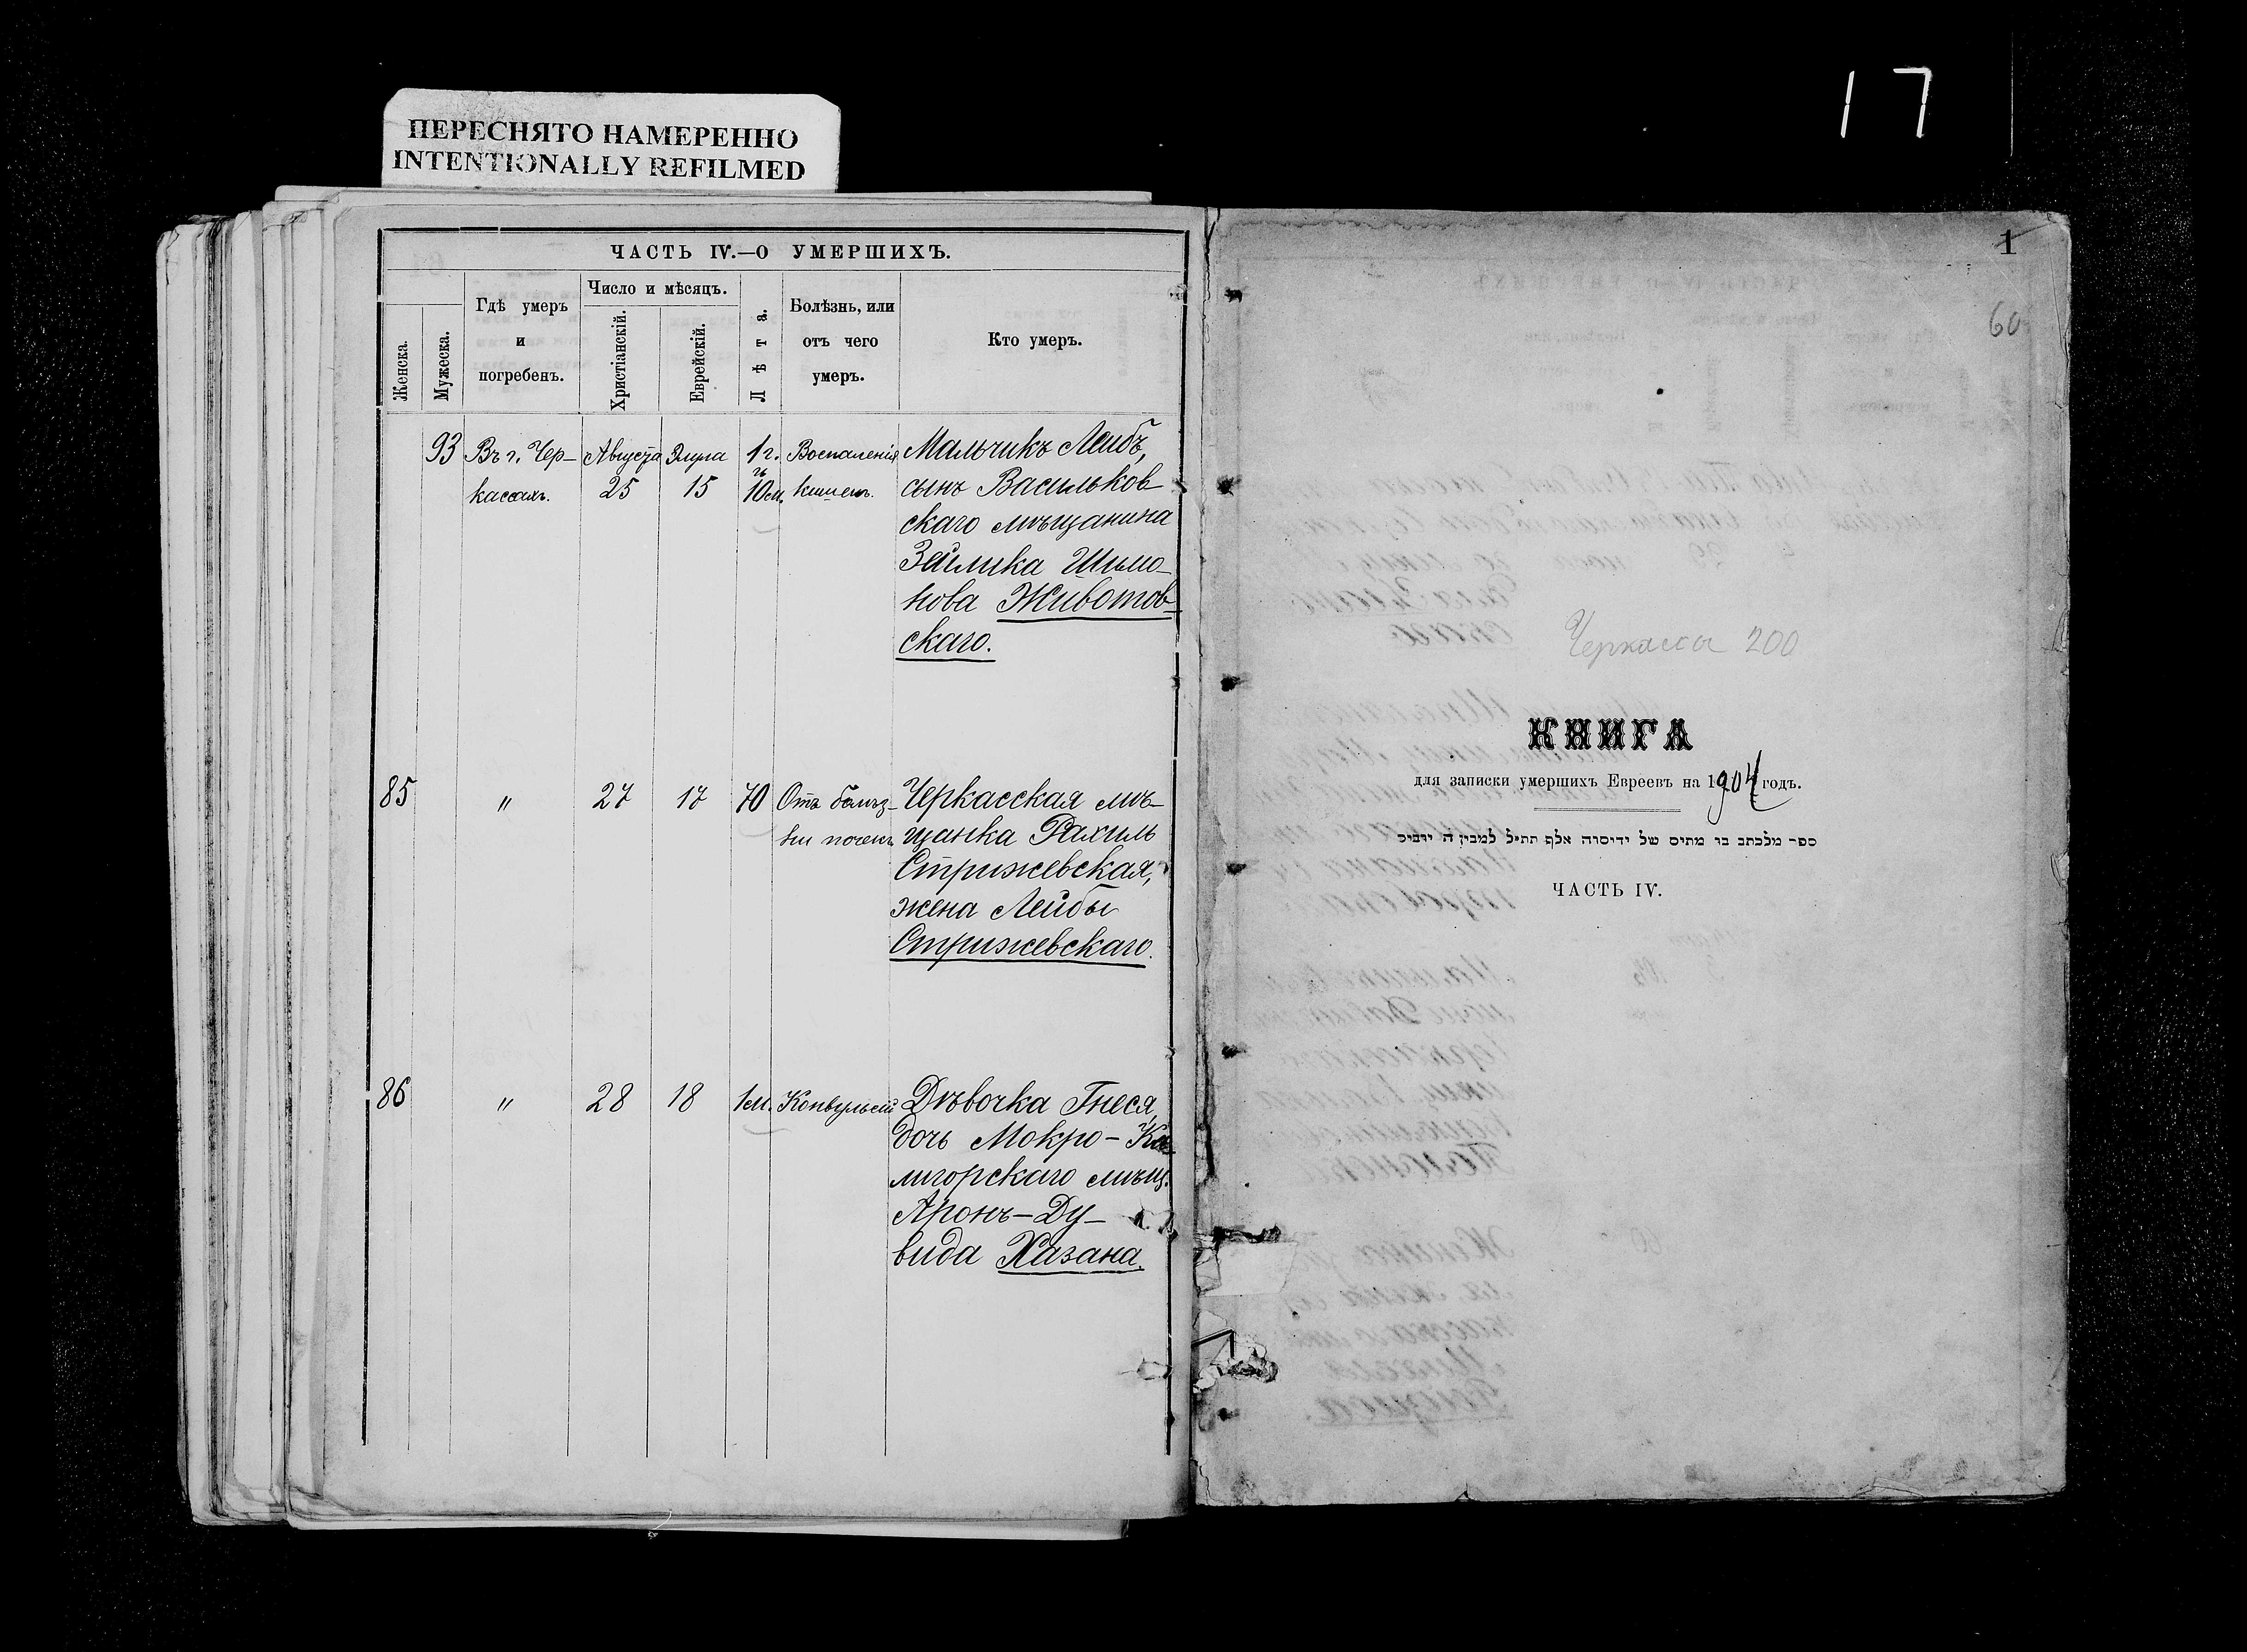 17
ПЕРЕСНЯТО НАМЕРЕННО
INTENTIONALLY REFILMED
ЧАСТЬ IV.—О УМЕРШИХЪ.
Женска.
Мужеска.
Гдѣ умеръ
и
погребенъ.
Число и мѣсяцъ.
Христіанскій.
Еврейскій.
Лѣта.
Болѣзнь, или
отъ чего
умеръ.
Кто умеръ.
93 Въ г. Чер- Августа Элула 1 г. Воспаленія Мальчикъ Лейбъ,
кассахъ. 25 15 10 м. кишекъ. сынъ Васильков-
скаго мѣщанина
Зейлика Шимо-
нова Животов-
скаго.
85 " 27 17 70 Отъ болѣз- Черкасская мѣ-
ни почекъ щанка Рахиль
Стрижевская,
жена Лейбы
Стрижевскаго.
86 " 28 18 1 м. Конвульсій Дѣвочка Гнеся,
дочь Мокро-Ка-
лигорскаго мѣщ.
Аронъ-Ду-
вида Хазана.
1
60
Черкассы 200
КНИГА
для записки умершихъ Евреевъ на 1904 годъ.
ספר מלכתב בו מתים של ידיסוה אלף תת״ל למבין ה יוביס
ЧАСТЬ IV.